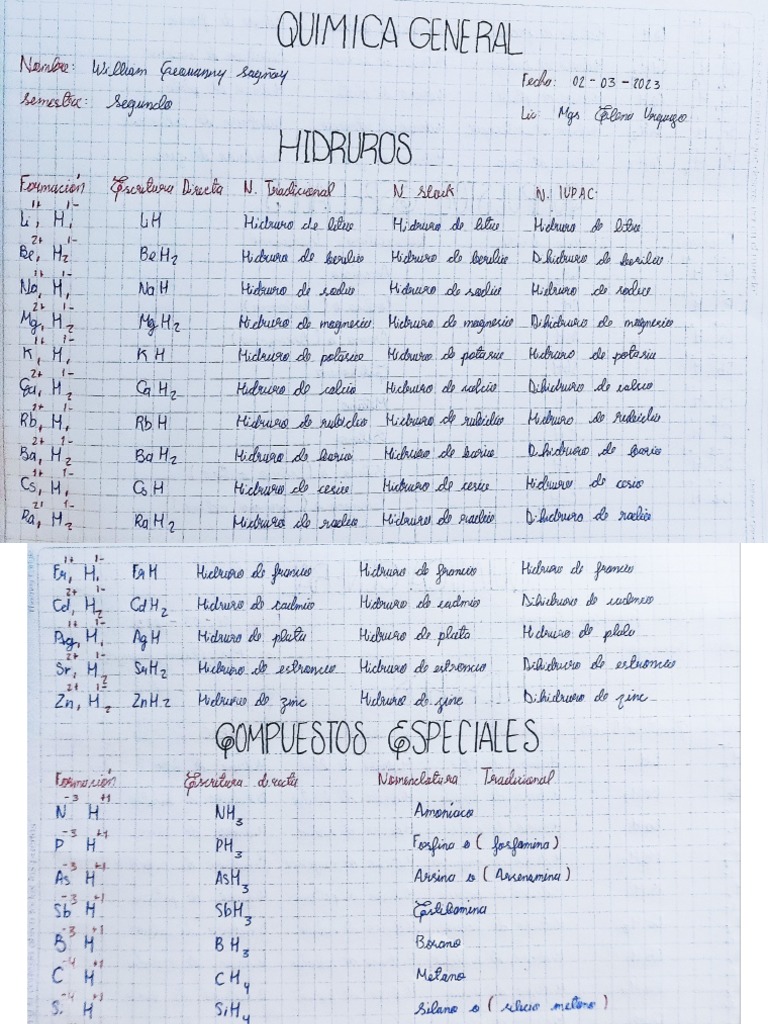 QUIMICA GENERAL
Nombre: William Geovanny Sagñay
Fecha: 02-03-2023
Semestre: Segundo
Lic: Mgs Elena Urquizo
HIDRUROS
Formación Escritura Directa N. Tradicional N stock N. IUPAC
Li¹⁺, H₁¹⁻ LiH Hidruro de litio Hidruro de litio Hidruro de litio
Be²⁺, H₂¹⁻ BeH₂ Hidruro de berilio Hidruro de berilio Dihidruro de berilio
Na¹⁺, H₁¹⁻ NaH Hidruro de sodio Hidruro de sodio Hidruro de sodio
Mg²⁺, H₂¹⁻ MgH₂ Hidruro de magnesio Hidruro de magnesio Dihidruro de magnesio
K¹⁺, H₁¹⁻ KH Hidruro de potasio Hidruro de potasio Hidruro de potasio
Ca²⁺, H₂¹⁻ CaH₂ Hidruro de calcio Hidruro de calcio Dihidruro de calcio
Rb¹⁺, H₁¹⁻ RbH Hidruro de rubidio Hidruro de rubidio Hidruro de rubidio
Ba²⁺, H₂¹⁻ BaH₂ Hidruro de bario Hidruro de bario Dihidruro de bario
Cs¹⁺, H₁¹⁻ CsH Hidruro de cesio Hidruro de cesio Hidruro de cesio
Ra²⁺, H₂¹⁻ RaH₂ Hidruro de radio Hidruro de radio Dihidruro de radio
Fr¹⁺, H₁¹⁻ FrH Hidruro de francio Hidruro de francio Hidruro de francio
Cd²⁺, H₂¹⁻ CdH₂ Hidruro de cadmio Hidruro de cadmio Dihidruro de cadmio
Ag¹⁺, H₁¹⁻ AgH Hidruro de plata Hidruro de plata Hidruro de plata
Sr²⁺, H₂¹⁻ SrH₂ Hidruro de estroncio Hidruro de estroncio Dihidruro de estroncio
Zn²⁺, H₂¹⁻ ZnH₂ Hidruro de zinc Hidruro de zinc Dihidruro de zinc
COMPUESTOS ESPECIALES
Formación Escritura directa Nomenclatura Tradicional
N⁻³ H⁺¹ NH₃ Amoníaco
P⁻³ H⁺¹ PH₃ Fosfina o (fosfamina)
As⁻³ H⁺¹ AsH₃ Arsina o (Arsenamina)
Sb⁻³ H⁺¹ SbH₃ Estibamina
B⁻³ H⁺¹ BH₃ Borano
C⁻⁴ H⁺¹ CH₄ Metano
Si⁻⁴ H⁺¹ SiH₄ Silano o (silicio metano)